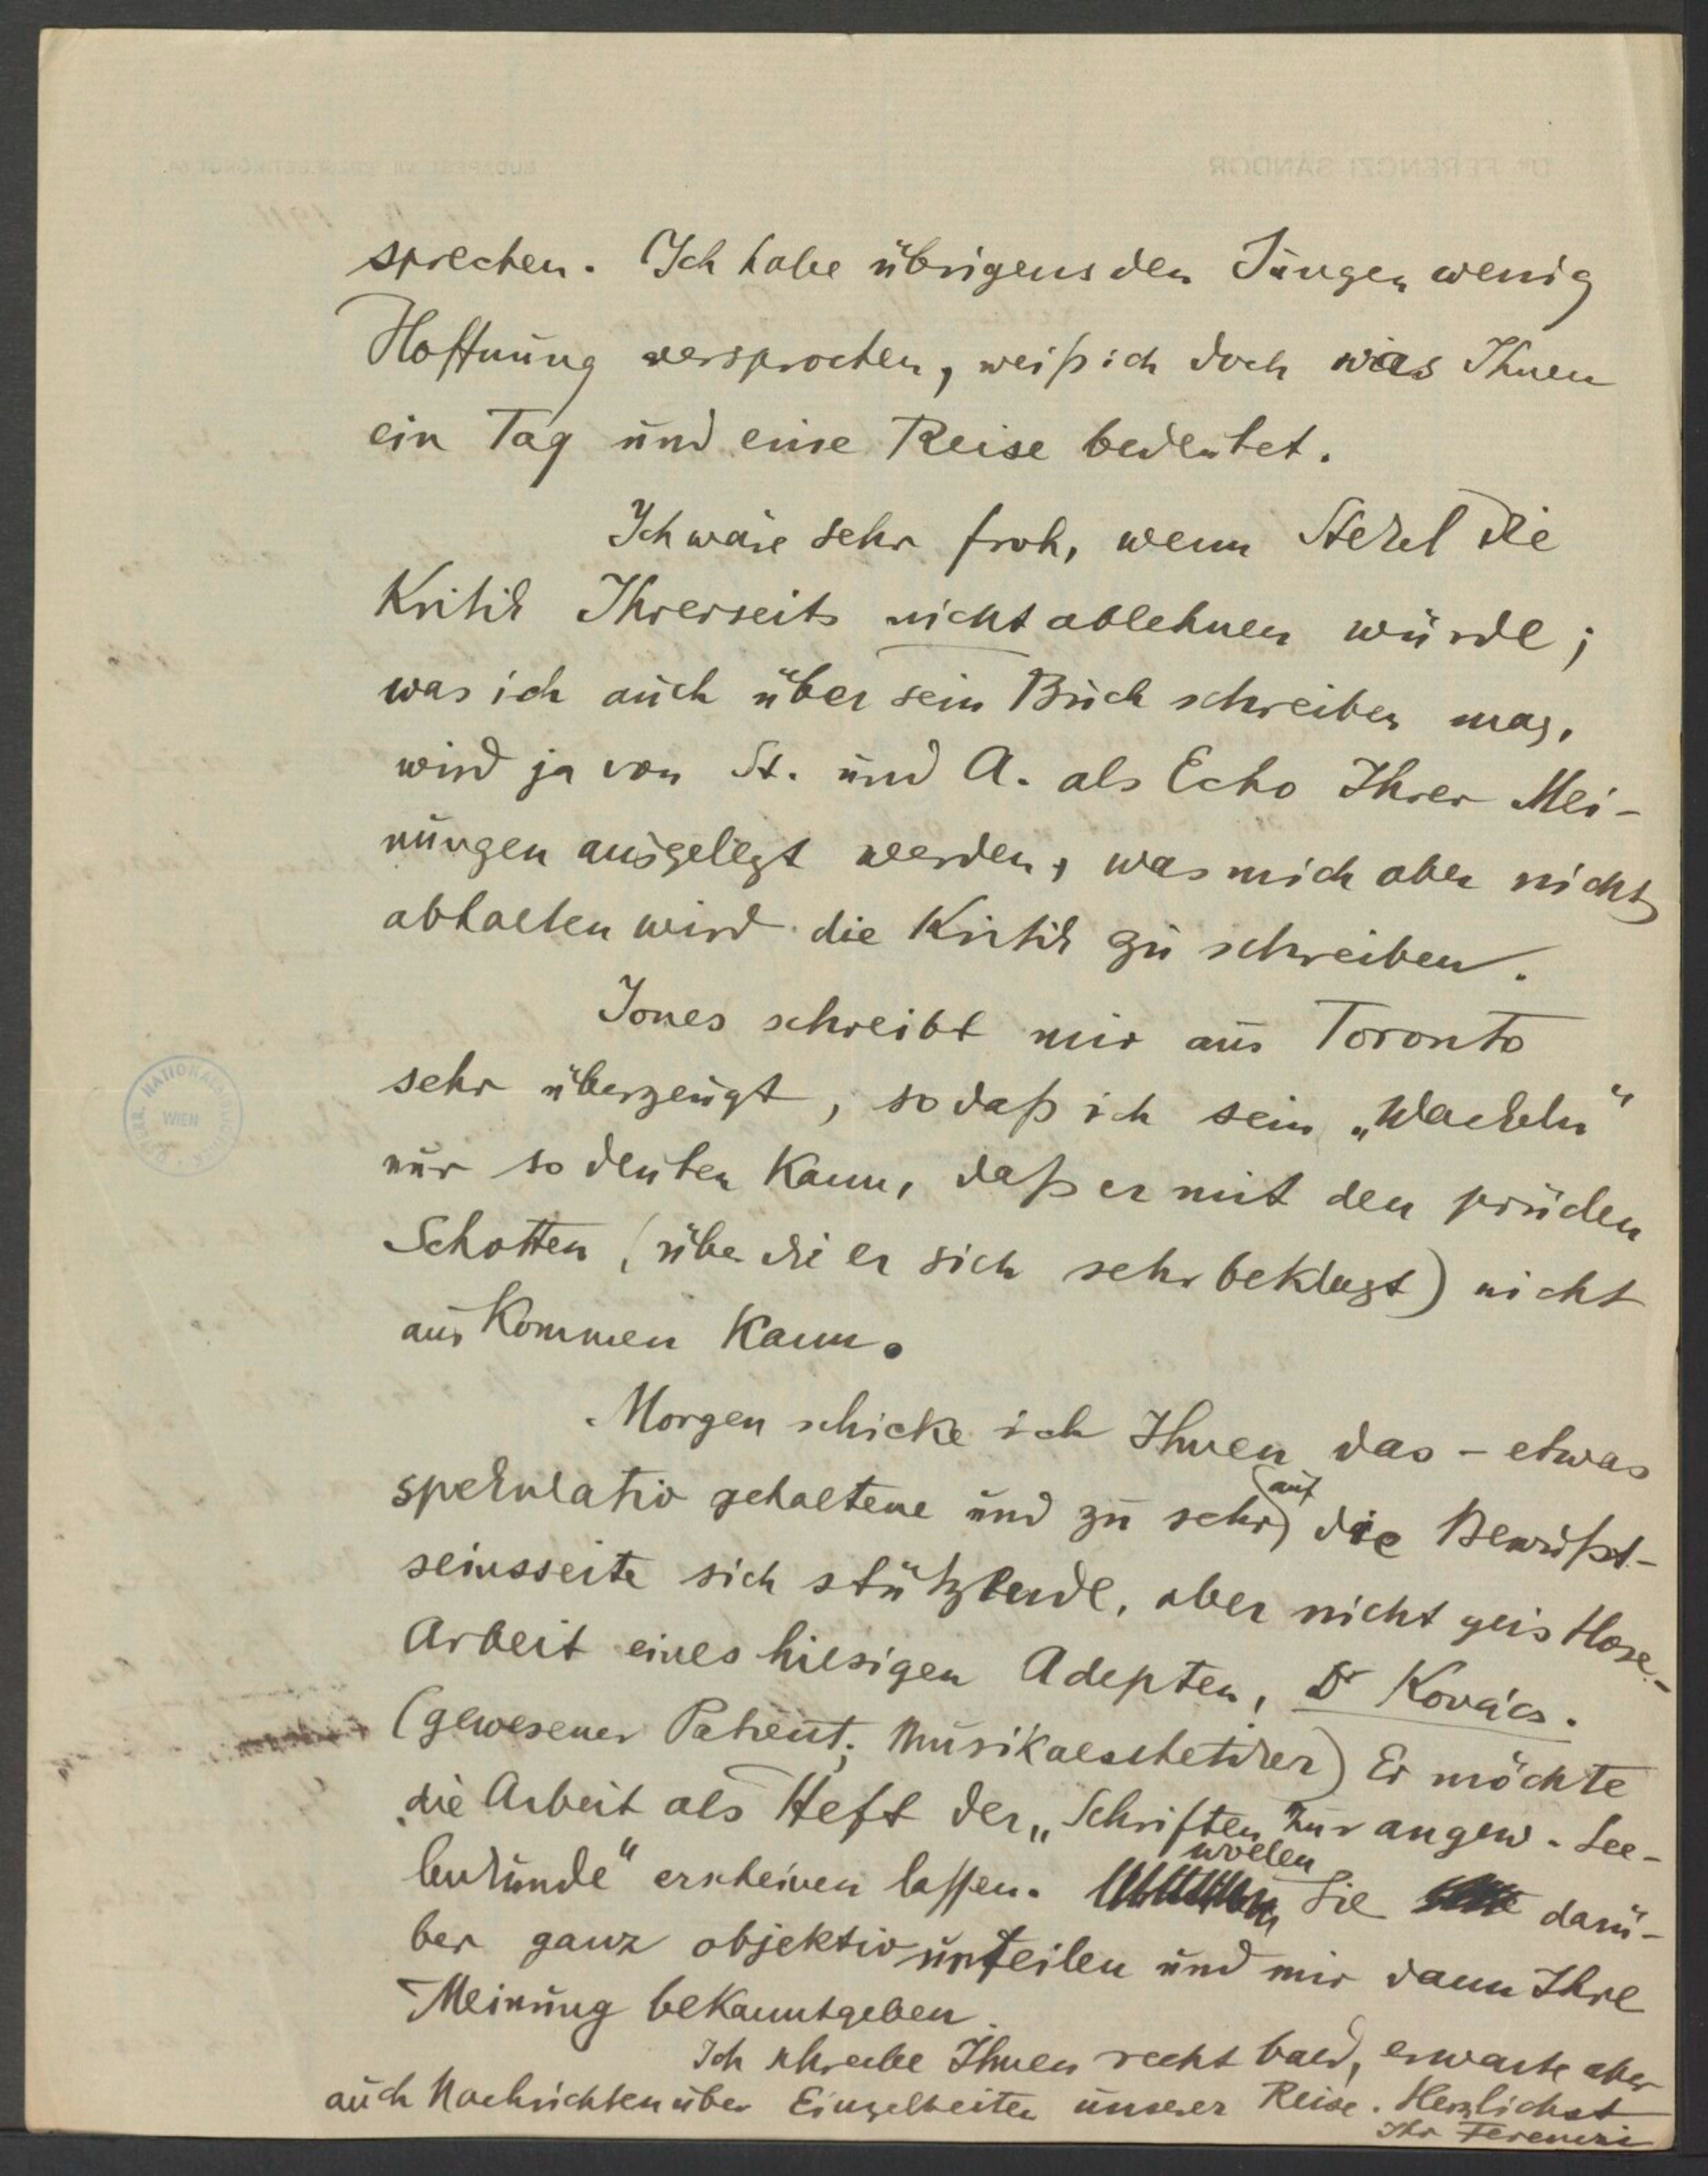 sprechen. Ich habe übrigens den Jungen wenig
Hoffnung versprochen, weiß ich doch was Ihnen
ein Tag und eine Reise bedeutet.
Ich wäre sehr froh, wenn Stekel die
Kritik Ihrerseits nicht ablehnen würde;
was ich auch über sein Buch schreiben mag,
wird ja von St. und A. als Echo Ihrer Mei-
nungen ausgelegt werden, was mich aber nicht
abhalten wird die Kritik zu schreiben.
Jones schreibt mir aus Toronto
sehr überzeugt, so daß ich sein „Wackeln“
nur so deuten kann, daß er mit den prüden
Schotten (über die er sich sehr beklagt) nicht
auskommen kann.
Morgen schicke ich Ihnen das – etwas
spekulativ gehaltene und zu sehr auf die Bewußt-
seinsseite sich stützende, aber nicht geistlose –
Arbeit eines hiesigen Adepten, Dr Kovács.
(gewesener Patient; Musikaesthetiker) Er möchte
die Arbeit als Heft der „Schriften zur angew. See-
lenkunde“ erscheinen lassen. wollen Sie darü-
ber ganz objektiv urteilen und mir dann Ihre
Meinung bekanntgeben.
Ich schreibe Ihnen recht bald, erwarte aber
auch Nachrichten über Einzelheiten unserer Reise. Herzlichst
Ihr Ferenczi
DR FERENCZI SÁNDOR
WIEN